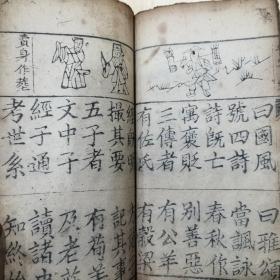 曰國風 曰雅頌
號四詩 當諷詠
詩既亡 春秋作
寓褒貶 別善惡
三傳者 有公羊
有左氏 有穀梁
賣身作葬
撮其要 記其事
五子者 有荀
文中子 及老
經子通 讀諸
考世系 知終